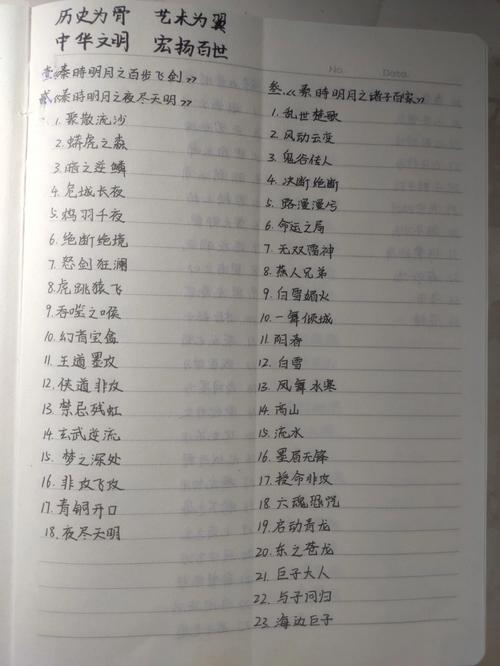 历史为骨 艺术为翼
中华文明 宏扬百世
No. Date.
壹《秦時明月之百步飞剑》
贰《秦時明月之夜尽天明》
1. 聚散流沙
2. 蟒虎之森
3. 暗之逆鳞
4. 危城长夜
5. 鸦羽千夜
6. 绝断绝境
7. 怒剑狂澜
8. 虎跳猿飞
9. 吞噬之喉
10. 幻音宝盒
11. 王道墨攻
12. 侠道非攻
13. 禁忌残虹
14. 玄武逆流
15. 梦之深处
16. 非攻飞攻
17. 青铜开口
18. 夜尽天明
叁《秦時明月之诸子百家》
1. 乱世楚歌
2. 风动云变
3. 鬼谷佳人
4. 决断绝断
5. 路漫漫兮
6. 命运之局
7. 无双蓄神
8. 燕人兄弟
9. 白雪媚火
10. 一舞倾城
11. 阳春
12. 白雪
13. 风舞水寒
14. 高山
15. 流水
16. 墨眉无锋
17. 授命非攻
18. 六魂恐咒
19. 启动青龙
20. 东之苍龙
21. 巨子大人
22. 与子同归
23. 海边巨子